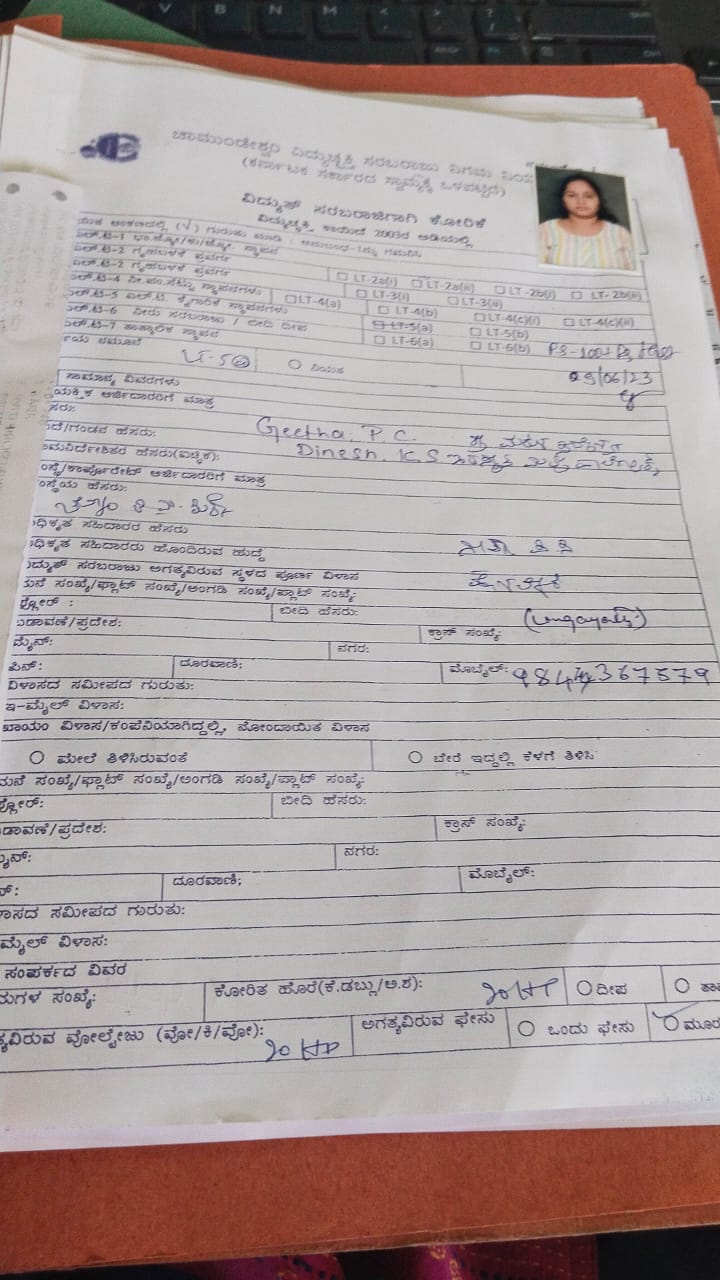 ಚಾಮುಂಡೇಶ್ವರಿ ವಿದ್ಯುಚ್ಛಕ್ತಿ ಸರಬರಾಜು ನಿಗಮ ನಿಯ
(ಕರ್ನಾಟಕ ಸರ್ಕಾರದ ಸ್ವಾಮ್ಯಕ್ಕೆ ಒಳಪಟ್ಟಿದೆ)
ವಿದ್ಯುತ್ ಸರಬರಾಜಿಗಾಗಿ ಕೋರಿಕೆ
ವಿದ್ಯುಚ್ಛಕ್ತಿ ಕಾಯಿದೆ 2003ರ ಅಡಿಯಲ್ಲಿ
(√) ಗುರುತು ಮಾಡಿ :
ಎಲ್.ಟಿ-1
ಎಲ್.ಟಿ-2 ಗೃಹಬಳಕೆ ಪ್ರವರ್ಗ LT-2a(i) LT-2a(ii) LT-2b(i) LT-2b(ii)
ಎಲ್.ಟಿ-2 ಗೃಹಬಳಕೆ ಪ್ರವರ್ಗ LT-3(i) LT-3(ii)
ಎಲ್.ಟಿ-4 ನೀ.ಪಂ.ಸೆಟ್ಟು ಸ್ಥಾಪನಗಳು LT-4(a) LT-4(b) LT-4(c)(i) LT-4(c)(ii)
ಎಲ್.ಟಿ-5 ಎಲ್.ಟಿ. ಕೈಗಾರಿಕೆ ಸ್ಥಾಪನಗಳು LT-5(a) LT-5(b)
ಎಲ್.ಟಿ-6 ನೀರು ಸರಬರಾಜು / ಬೀದಿ ದೀಪ LT-6(a) LT-6(b)
ಎಲ್.ಟಿ-7 ತಾತ್ಕಾಲಿಕ ಸ್ಥಾಪನ
LT-5 ನಿಯತ 09/06/23
ಸಾಮಾನ್ಯ ವಿವರಗಳು
ಯಕ್ತಿಕ ಅರ್ಜಿದಾರರಿಗೆ ಮಾತ್ರ
ಸರು: Geetha. P. C.
ದೆ/ಗಂಡನ ಹೆಸರು: Dinesh. K.S
ಾಮನಿರ್ದೇಶಿತರ ಹೆಸರು(ಐಚ್ಛಿಕ):
ಂಸ್ಥೆ/ಕಾರ್ಪೊರೇಟ್ ಅರ್ಜಿದಾರರಿಗೆ ಮಾತ್ರ
ಂಸ್ಥೆಯ ಹೆಸರು:
ಧಿಕೃತ ಸಹಿದಾರರ ಹೆಸರು
ಧಿಕೃತ ಸಹಿದಾರರು ಹೊಂದಿರುವ ಹುದ್ದೆ
ದ್ಯುತ್ ಸರಬರಾಜು ಅಗತ್ಯವಿರುವ ಸ್ಥಳದ ಪೂರ್ಣ ವಿಳಾಸ
ಮನೆ ಸಂಖ್ಯೆ/ಫ್ಲಾಟ್ ಸಂಖ್ಯೆ/ಅಂಗಡಿ ಸಂಖ್ಯೆ/ಪ್ಲಾಟ್ ಸಂಖ್ಯೆ:
ಫ್ಲೋರ್ : ಬೀದಿ ಹೆಸರು:
ಬಡಾವಣೆ/ಪ್ರದೇಶ: ಕ್ರಾಸ್ ಸಂಖ್ಯೆ:
ಮೈನ್: ನಗರ:
ಪಿನ್: ದೂರವಾಣಿ: ಮೊಬೈಲ್:
ವಿಳಾಸದ ಸಮೀಪದ ಗುರುತು:
ಇ-ಮೈಲ್ ವಿಳಾಸ:
ಖಾಯಂ ವಿಳಾಸ/ಕಂಪೆನಿಯಾಗಿದ್ದಲ್ಲಿ, ನೋಂದಾಯಿತ ವಿಳಾಸ
ಮೇಲೆ ತಿಳಿಸಿರುವಂತೆ ಬೇರೆ ಇದ್ದಲ್ಲಿ ಕೆಳಗೆ ತಿಳಿಸಿ
ಮನೆ ಸಂಖ್ಯೆ/ಫ್ಲಾಟ್ ಸಂಖ್ಯೆ/ಅಂಗಡಿ ಸಂಖ್ಯೆ/ಪ್ಲಾಟ್ ಸಂಖ್ಯೆ:
ಫ್ಲೋರ್: ಬೀದಿ ಹೆಸರು:
ಡಾವಣೆ/ಪ್ರದೇಶ: ಕ್ರಾಸ್ ಸಂಖ್ಯೆ:
ಮೈನ್: ನಗರ:
ನ್: ದೂರವಾಣಿ; ಮೊಬೈಲ್:
ಳಾಸದ ಸಮೀಪದ ಗುರುತು:
ಮೈಲ್ ವಿಳಾಸ:
ಸಂಪರ್ಕದ ವಿವರ
ಮಗಳ ಸಂಖ್ಯೆ: ಕೋರಿತ ಹೊರೆ(ಕೆ.ಡಬ್ಲು/ಅ.ಶ): 20 HP ದೀಪ
ತ್ಯವಿರುವ ವೋಲ್ಟೇಜು (ವೋ/ಕಿ/ವೋ): 20 HP ಅಗತ್ಯವಿರುವ ಫೇಸು ಒಂದು ಫೇಸು ಮೂರ